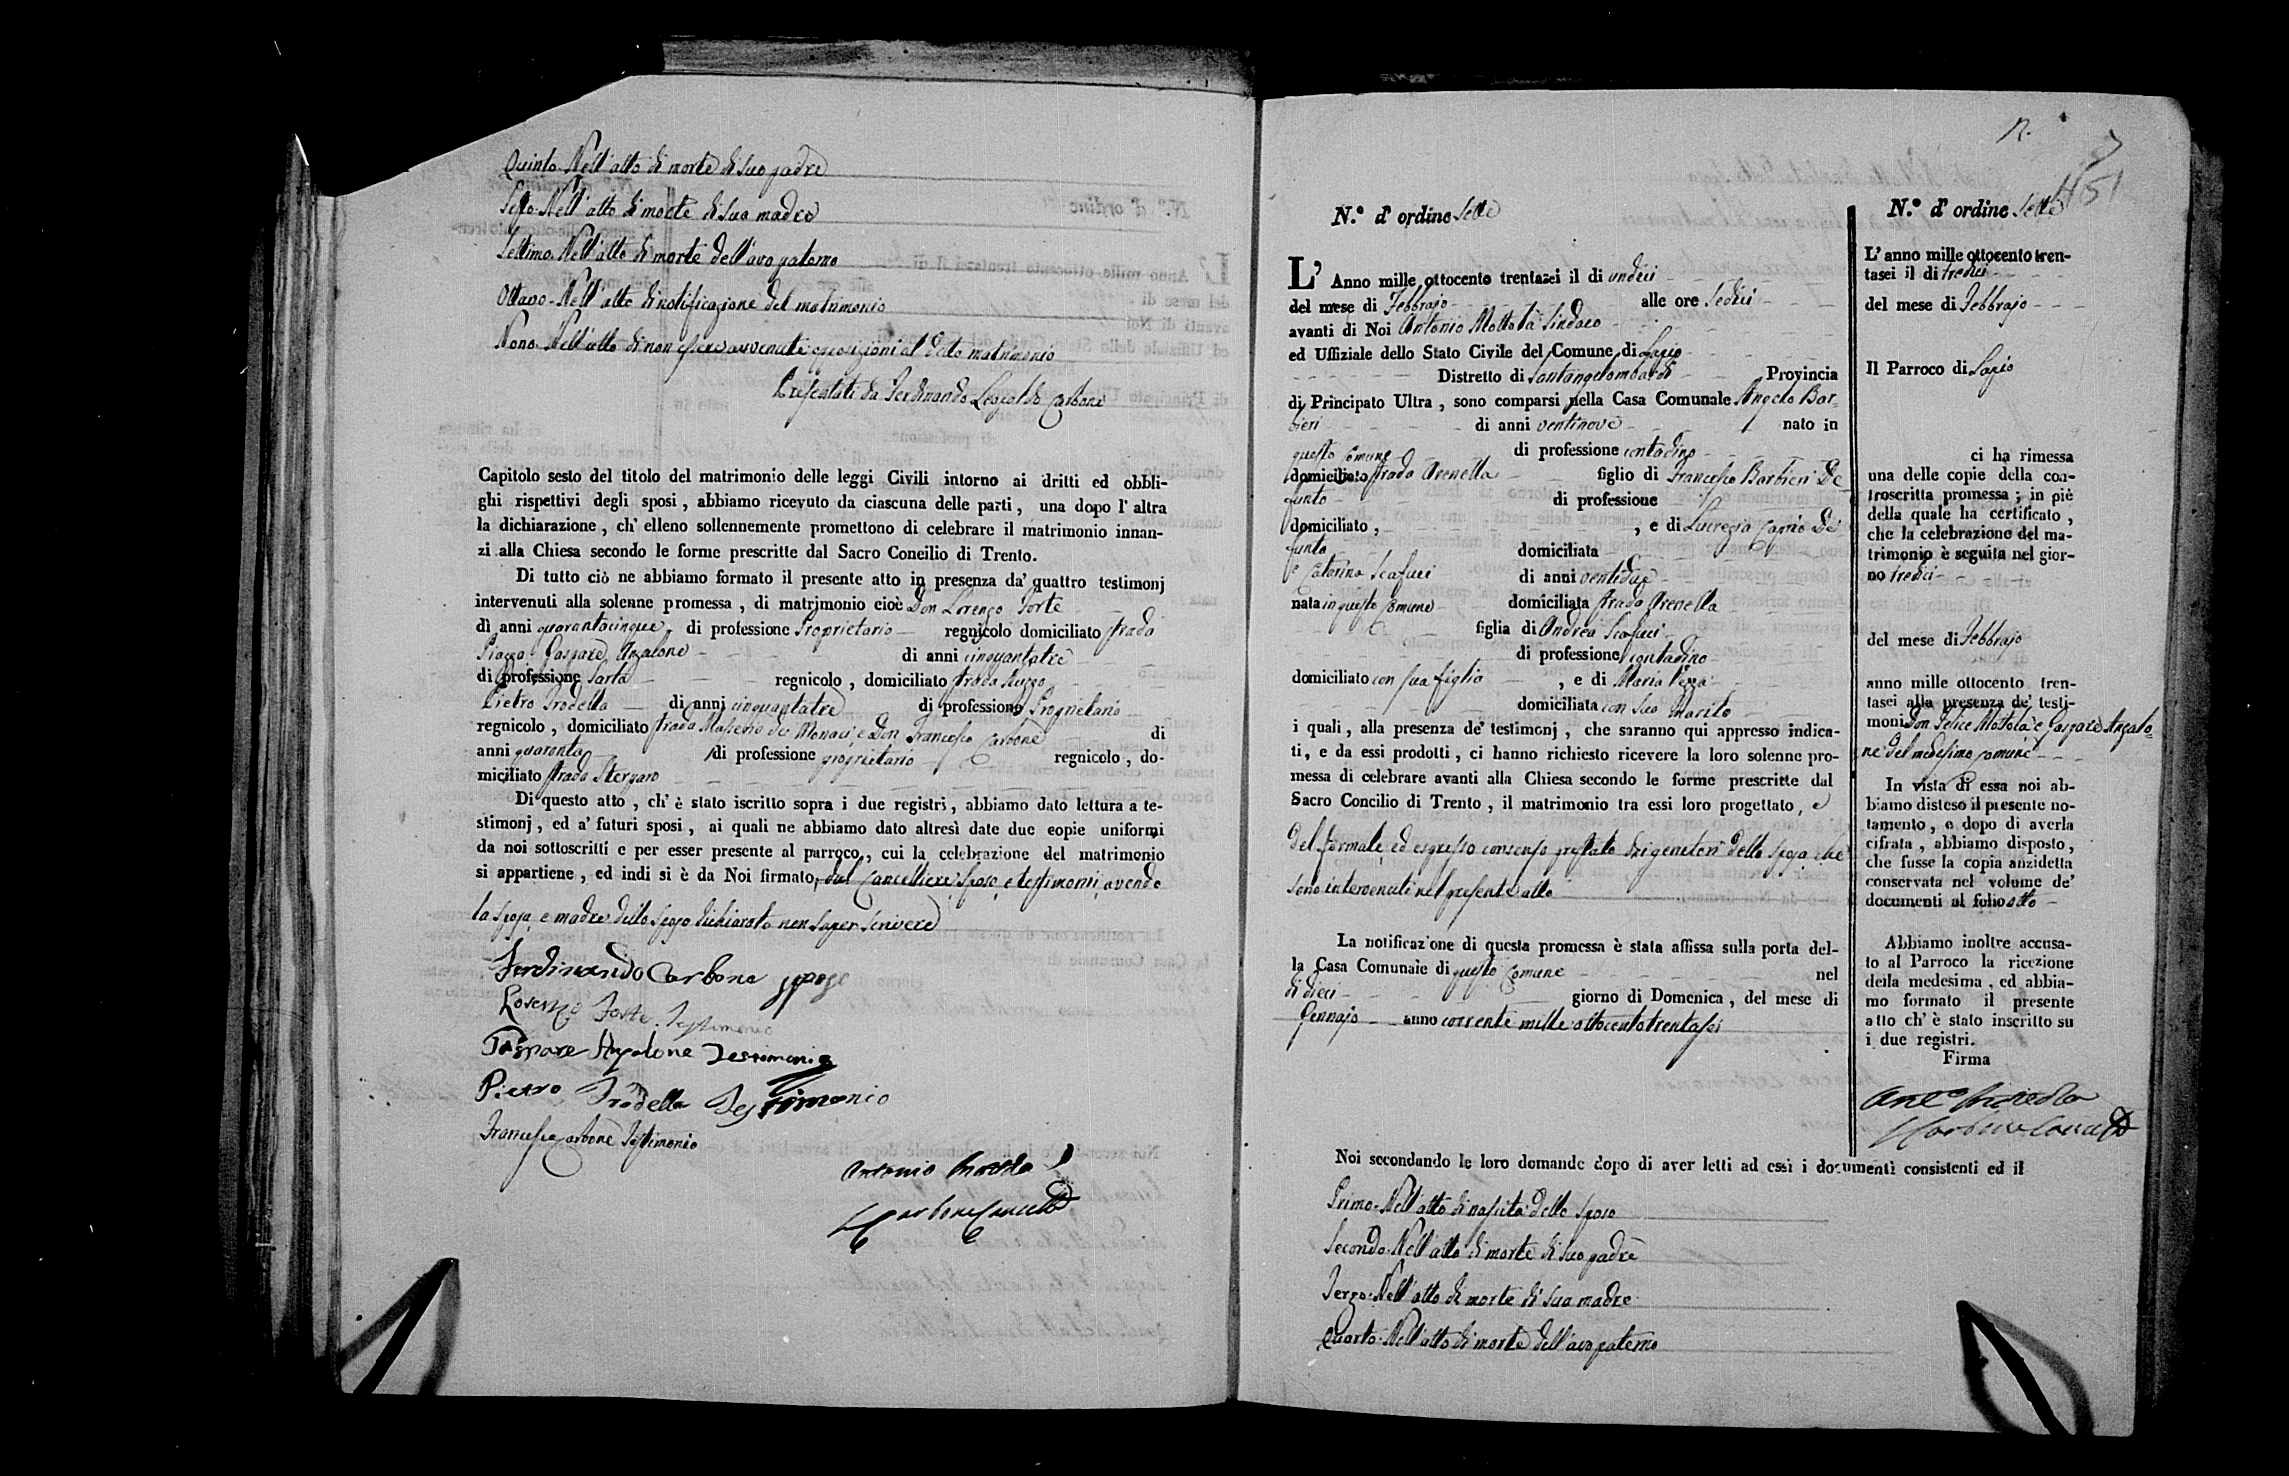 Quinto. Nell'atto di morte di suo padre
Sesto. Nell'atto di morte di sua madre
Settimo. Nell'atto di morte dell'avo paterno
Ottavo. Nell'atto di notificazione del matrimonio
Nono. Nell'atto di non essere avvenute opposizioni al detto matrimonio
Presentati da Ferdinando Leopoldo Carbone
Capitolo sesto del titolo del matrimonio delle leggi Civili intorno ai dritti ed obbli-
ghi rispettivi degli sposi, abbiamo ricevuto da ciascuna delle parti, una dopo l'altra
la dichiarazione, ch'elleno sollennemente promettono di celebrare il matrimonio innan-
zi alla Chiesa secondo le forme prescritte dal Sacro Concilio di Trento.
Di tutto ciò ne abbiamo formato il presente atto in presenza da' quattro testimonj
intervenuti alla solenne promessa, di matrimonio cioè Don Lorenzo Forte
di anni quarantacinque di professione Proprietario regnicolo domiciliato strada
Piazza Gaspare Anzalone di anni cinquantatre
di professione Sarto regnicolo, domiciliato strada
Pietro Frodella di anni cinquantatre di professione Proprietario
regnicolo, domiciliato strada de' Monaci e Don Francesco Carbone di
anni quaranta di professione proprietario regnicolo, do-
miciliato strada
Di questo atto, ch'è stato iscritto sopra i due registri, abbiamo dato lettura a te-
stimonj, ed a' futuri sposi, ai quali ne abbiamo dato altresì date due copie uniformi
da noi sottoscritti e per esser presente al parroco, cui la celebrazione del matrimonio
si appartiene, ed indi si è da Noi firmato, dal Cancelliere Sposo e testimonii avendo
la sposa e madre dello sposo dichiarato non saper scrivere
Ferdinando Carbone sposo
Lorenzo Forte Testimonio
Gaspare Anzalone Testimonio
Pietro Frodella Testimonio
Francesco Carbone Testimonio
Antonio Mottola
Carbone Cancell
12.
151
N.° d' ordine Sette
L' Anno mille ottocento trentasei il di undici
del mese di Febbrajo alle ore Sedici
avanti di Noi Antonio Mottola Sindaco
ed Uffiziale dello Stato Civile del Comune di Lapio
Distretto di Santangelombardi Provincia
di Principato Ultra, sono comparsi nella Casa Comunale Angelo Bar-
bieri di anni ventinove nato in
questo Comune di professione contadino
domiciliato strada Arenella figlio di Francesco Barbieri De-
funto di professione
domiciliato, , e di Lucrezia Caprio De-
funta domiciliata
e Catarina Scafuri di anni ventidue
nata in questo Comune domiciliata strada Arenella
figlia di Andrea Scafuri
di professione contadino
domiciliato con sua figlia , e di Maria
domiciliata con suo marito
i quali, alla presenza de' testimonj, che saranno qui appresso indica-
ti, e da essi prodotti, ci hanno richiesto ricevere la loro solenne pro-
messa di celebrare avanti alla Chiesa secondo le forme prescritte dal
Sacro Concilio di Trento, il matrimonio tra essi loro progettato, e
del formale ed espresso consenso prestato dai genitori della sposa che
sono intervenuti nel presente atto
La notificazione di questa promessa è stata affissa sulla porta del-
la Casa Comunale di questo Comune nel
di dieci giorno di Domenica, del mese di
Gennajo anno corrente mille ottocentotrentasei
N.° d' ordine Sette
L' anno mille ottocento tren-
tasei il di tredici
del mese di Febbrajo
Il Parroco di Lapio
ci ha rimessa
una delle copie della con-
troscritta promessa; in piè
della quale ha certificato,
che la celebrazione del ma-
trimonio è seguita nel gior-
no tredici
del mese di Febbrajo
anno mille ottocento tren-
tasei alla presenza de' testi-
moni Don Felice Mottola e Gaspare Anzalo-
ne del medesimo comune
In vista di essa noi ab-
biamo disteso il presente no-
tamento, e dopo di averla
cifrata, abbiamo disposto,
che fusse la copia anzidetta
conservata nel volume de'
documenti al folio otto
Abbiamo inoltre accusa-
to al Parroco la ricezione
della medesima, ed abbia-
mo formato il presente
atto ch'è stato inscritto su
i due registri.
Firma
Ant° Mottola
Carbone Cancell
Noi secondando le loro domande dopo di aver letti ad essi i documenti consistenti ed il
Primo. Nell'atto di nascita dello sposo
Secondo. Nell'atto di morte di suo padre
Terzo. Nell'atto di morte di sua madre
Quarto. Nell'atto di morte dell'avo paterno